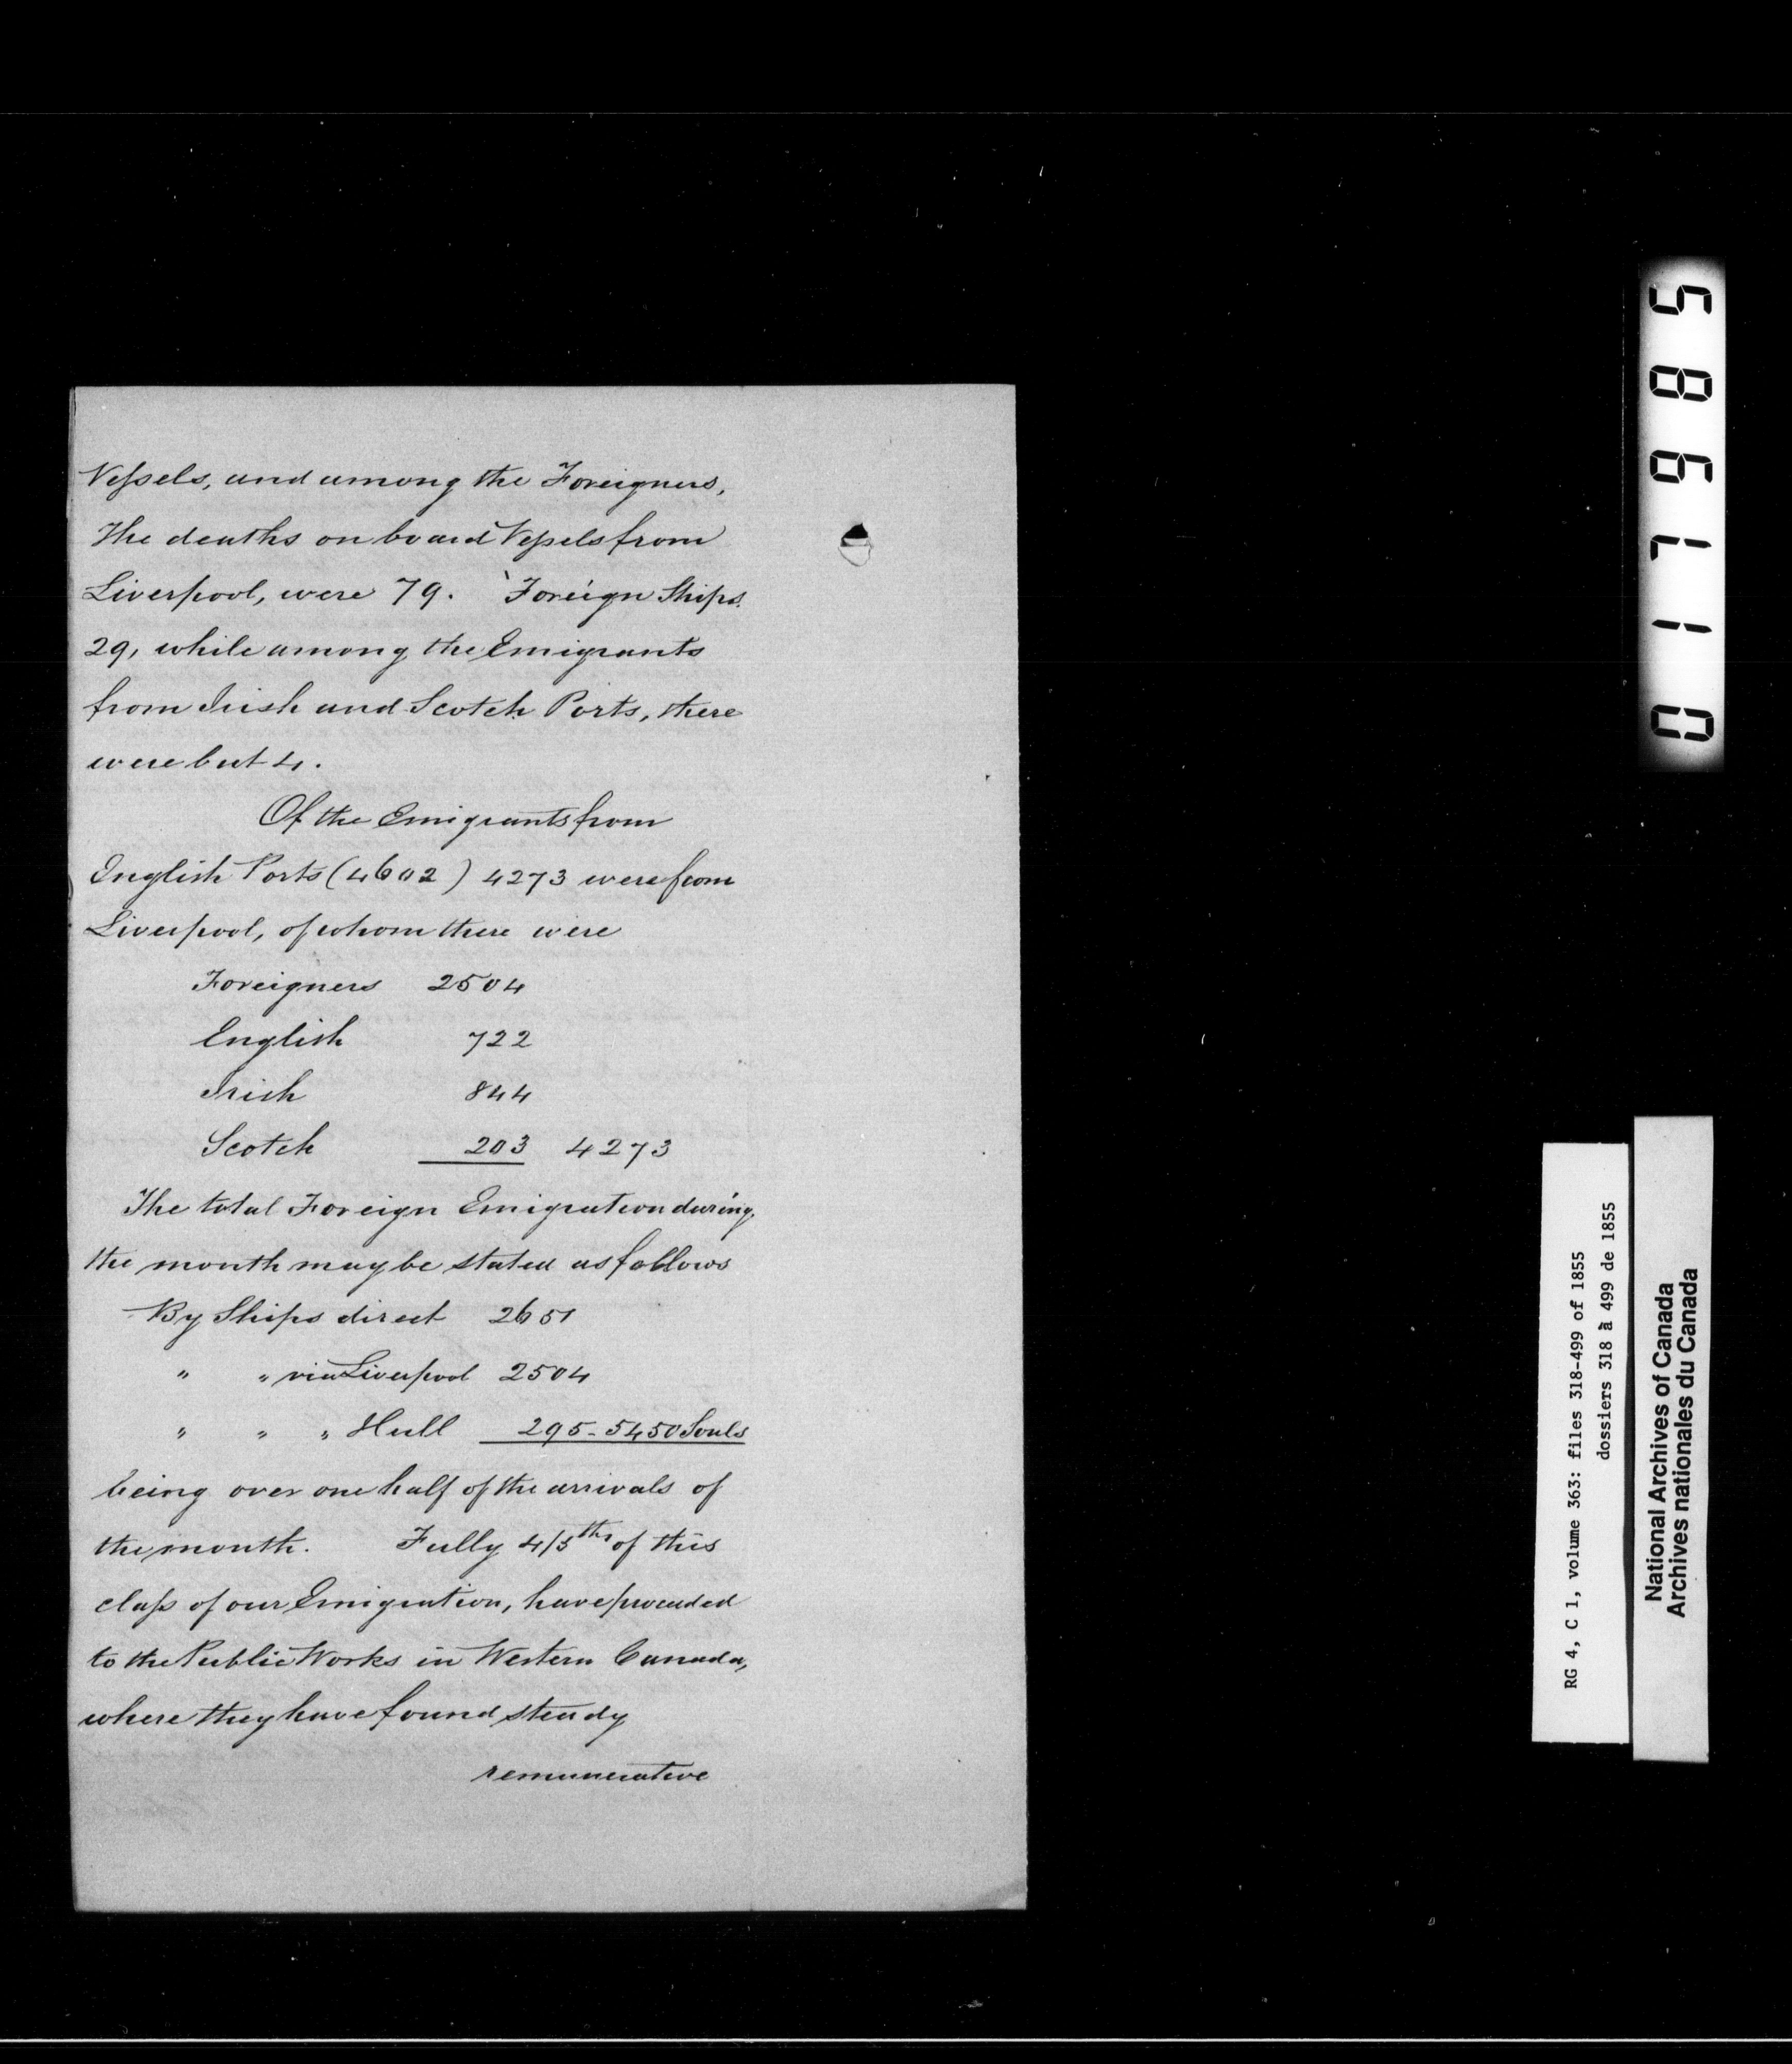 Vessels, and among the Foreigners,
The deaths on board Vessels from
Liverpool, were 79. Foreign Ships
29, while among the Emigrants
from Irish and Scotch Ports, there
were but 4.
Of the Emigrants from
English Ports (4602) 4273 were from
Liverpool, of whom there were
Foreigners 2504
English 722
Irish 844
Scotch 203 4273
The total Foreign Emigration during
the month may be stated as follows
By Ships direct 2651
" " via Liverpool 2504
" " " Hull 295 - 5450 Souls
being over one half of the arrivals of
the month. Fully 4/5ths of this
class of our Emigration, have proceeded
to the Public Works in Western Canada,
where they have found steady
remunerative
017985
RG 4, C 1, volume 363: files 318-499 of 1855
dossiers 318 à 499 de 1855
National Archives of Canada
Archives nationales du Canada